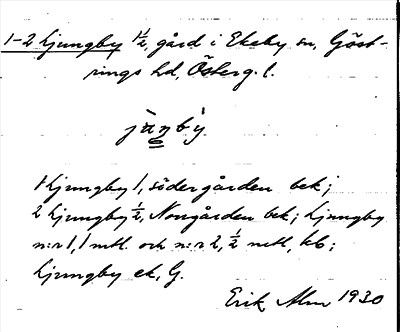 1-2 Ljungby 1½, gård i Ekeby sn, Göst-
rings hd, Österg. l.
jùŋbý
1 Ljungby 1, södergården bek;
2 Ljungby ½, Norrgården bek; Ljungby
n:r 1, 1 mtl. och n:r 2, ½ mtl, kb;
Ljungby ek, G.
Erik Alm 1930